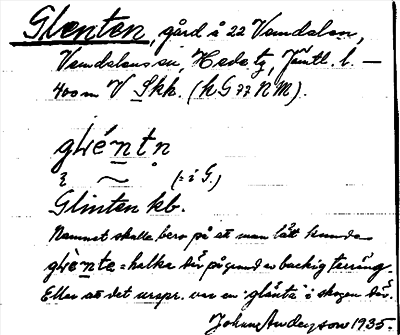 Glenten, gård i 22 Vemdalen,
Vemdalens sn, Hede tg, Jämtl. l. —
400 m V Skh. (hG77NM).
glèntn
(= i G.)
Glinten kb.
Namnet skulle bero på att man lätt kunde
glènte = halka där på grund av backig terräng.
Eller att det urspr. var en "glänta" i skogen där.
Johan Anderson 1935.